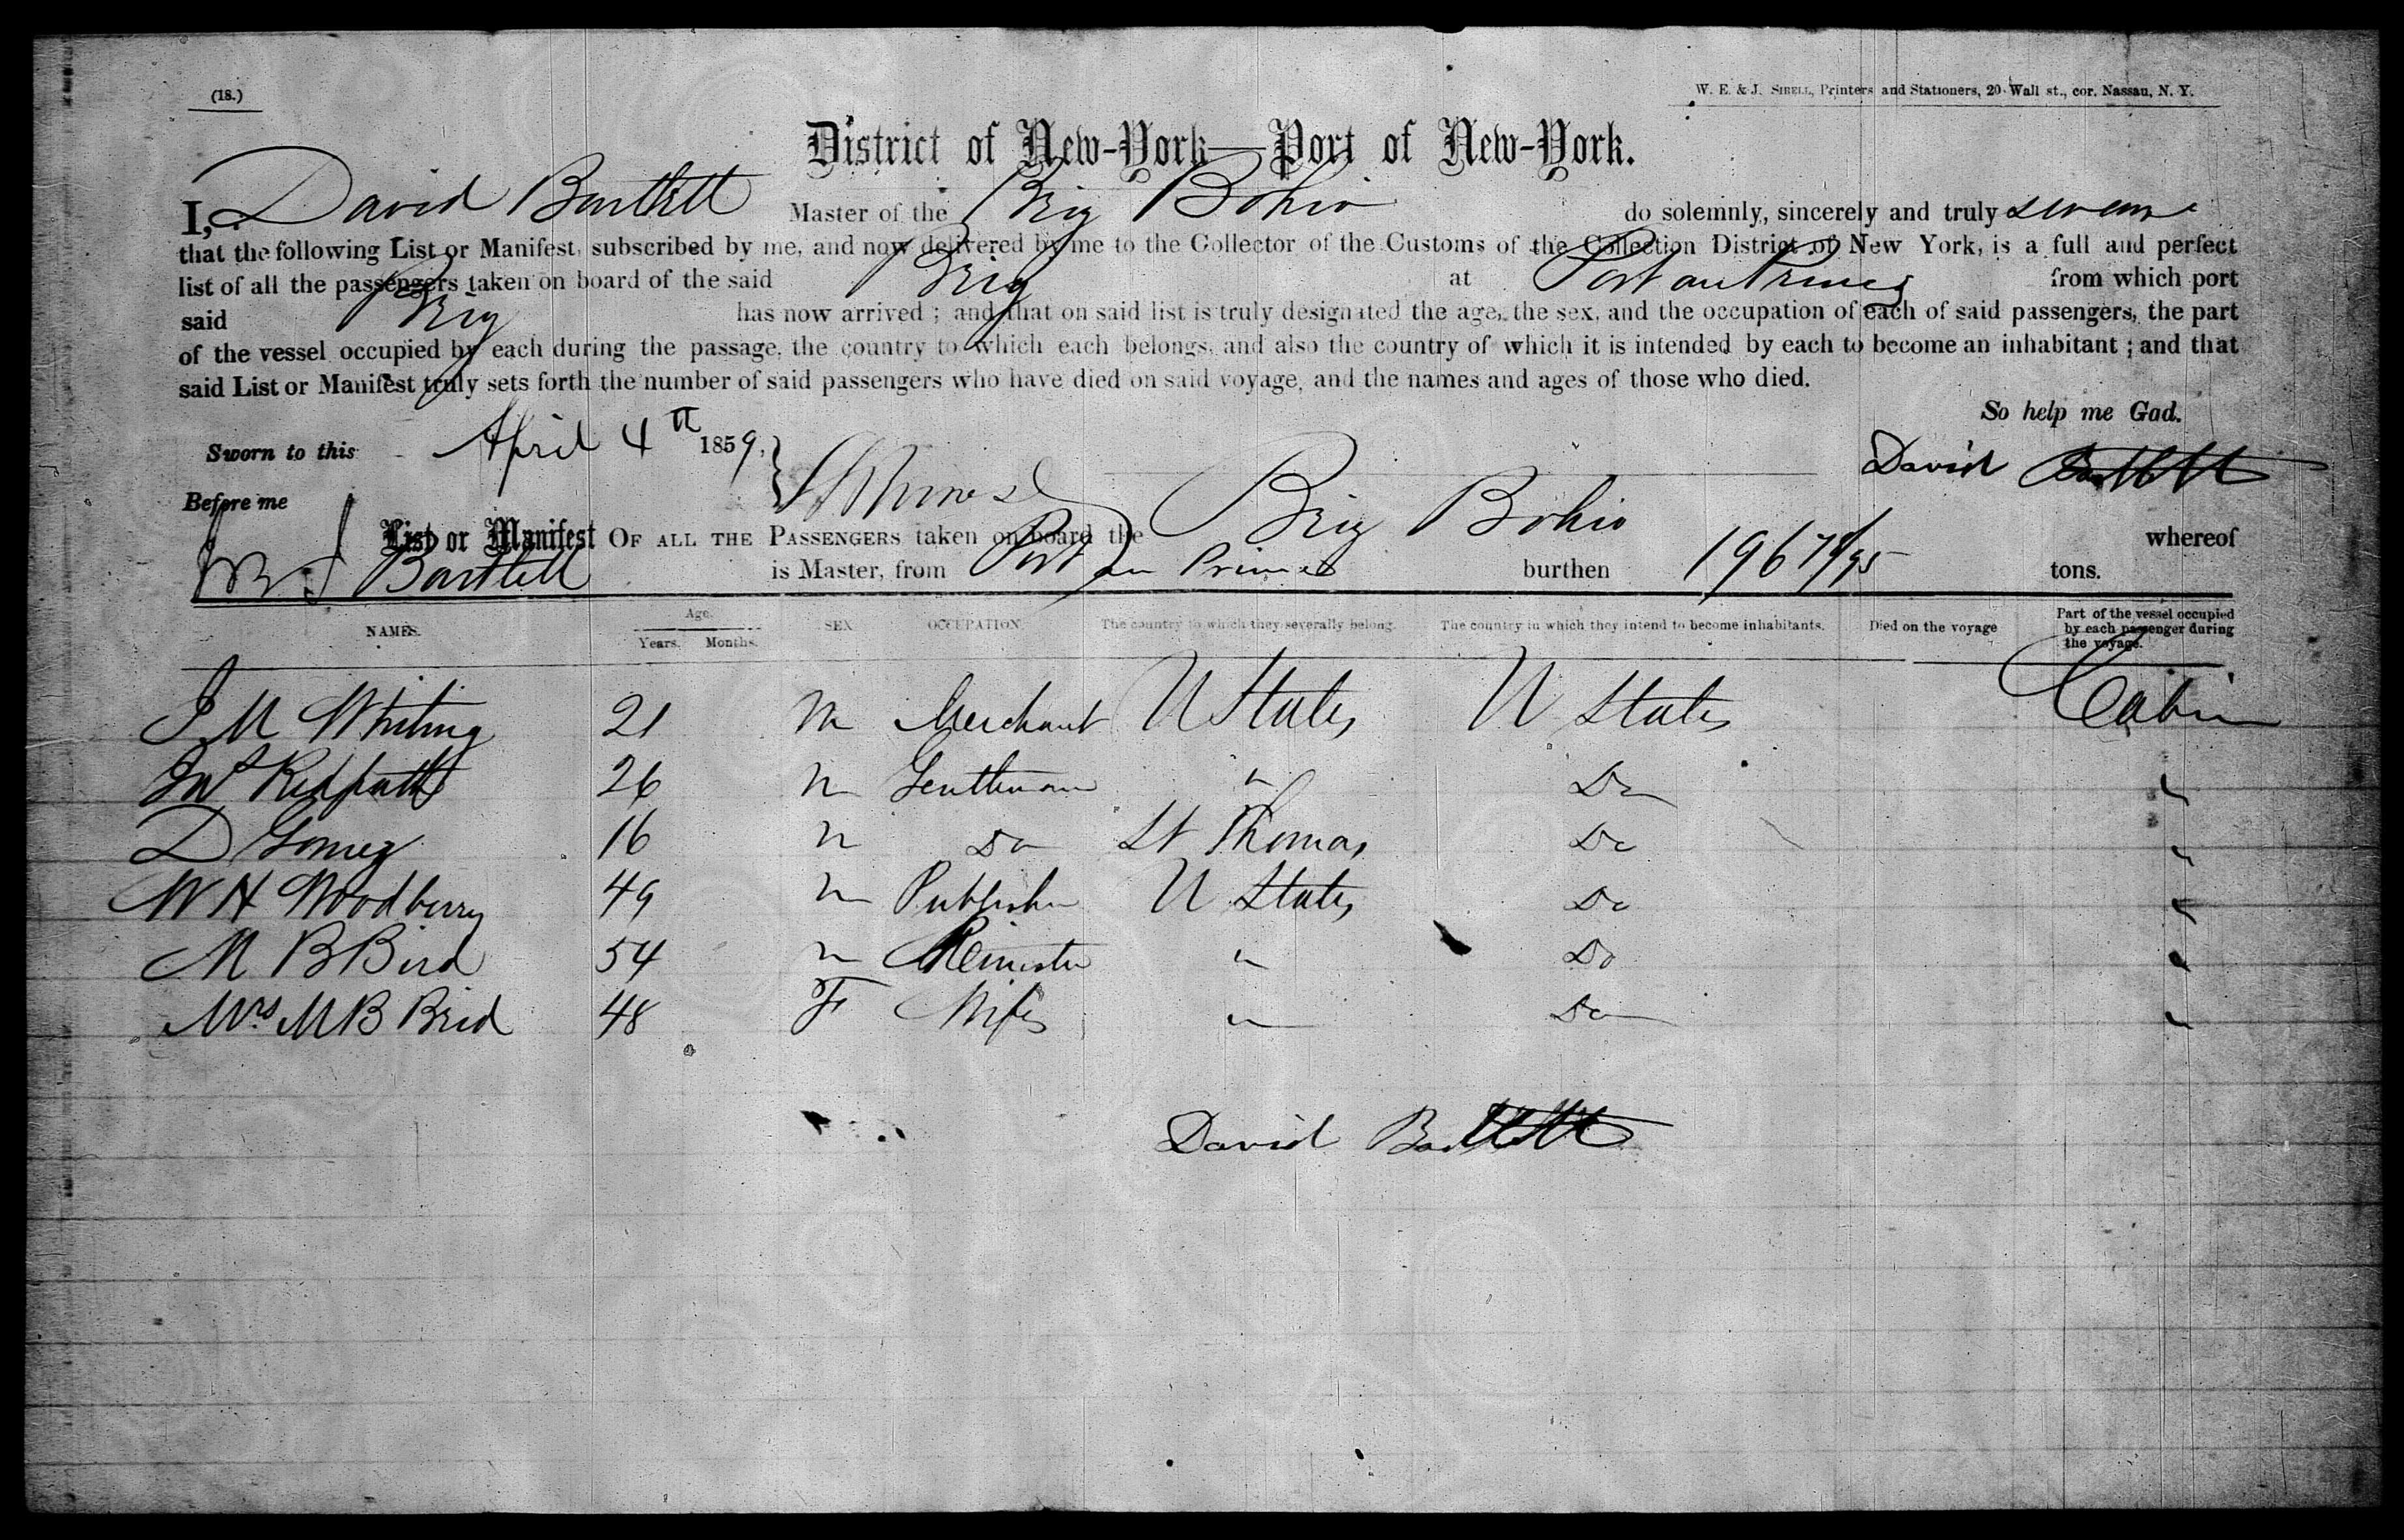 (18.)
W. E. & J. SIBELL, Printers and Stationers, 20 Wall st., cor. Nassau, N. Y.
District of New-York—Port of New-York.
I, David Bartlett Master of the Brig Bohio do solemnly, sincerely and truly swear
that the following List or Manifest, subscribed by me, and now delivered by me to the Collector of the Customs of the Collection District of New York, is a full and perfect
list of all the passengers taken on board of the said Brig at Port au Prince from which port
said Brig has now arrived; and that on said list is truly designated the age, the sex, and the occupation of each of said passengers, the part
of the vessel occupied by each during the passage, the country to which each belongs, and also the country of which it is intended by each to become an inhabitant; and that
said List or Manifest truly sets forth the number of said passengers who have died on said voyage, and the names and ages of those who died.
So help me God.
Sworn to this April 4th 1859,
David Bartlett
Before me
List or Manifest OF ALL THE PASSENGERS taken on board the Brig Bohio whereof
Bartlett is Master, from Port au Prince burthen 196 tons.
NAMES. Age. Years. Months. SEX OCCUPATION The country to which they severally belong. The country in which they intend to become inhabitants. Died on the voyage Part of the vessel occupied by each passenger during the voyage.
J M Whiting 21 m Merchant U States U States Cabin
Jas Redpath 26 m Gentleman " Do "
D Gomez 16 m Do St Thomas Do "
W H Woodberry 49 m Publisher U States Do "
M B Bird 54 m Minister " Do "
Mrs M B Brid 48 F Wife " Do "
David Bartlett